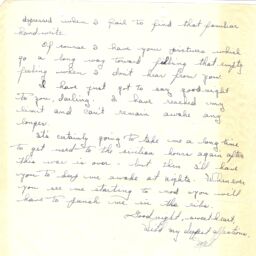 depressed when I fail to find that familiar
handwrite.
Of course I have your pictures which
go a long way toward filling that empty
feeling when I don't hear from you.
I have just got to say goodnight
to you, darling. I have reached my
limit and can't remain awake any
longer.
It's certainly going to take me a long time
to get used to the civilian hours again after
this war is over - but then I'll have
you to keep me awake at nights. Whenever
you see me starting to nod you will
have to punch me in the ribs.
Goodnight, sweetheart,
my deepest affections,